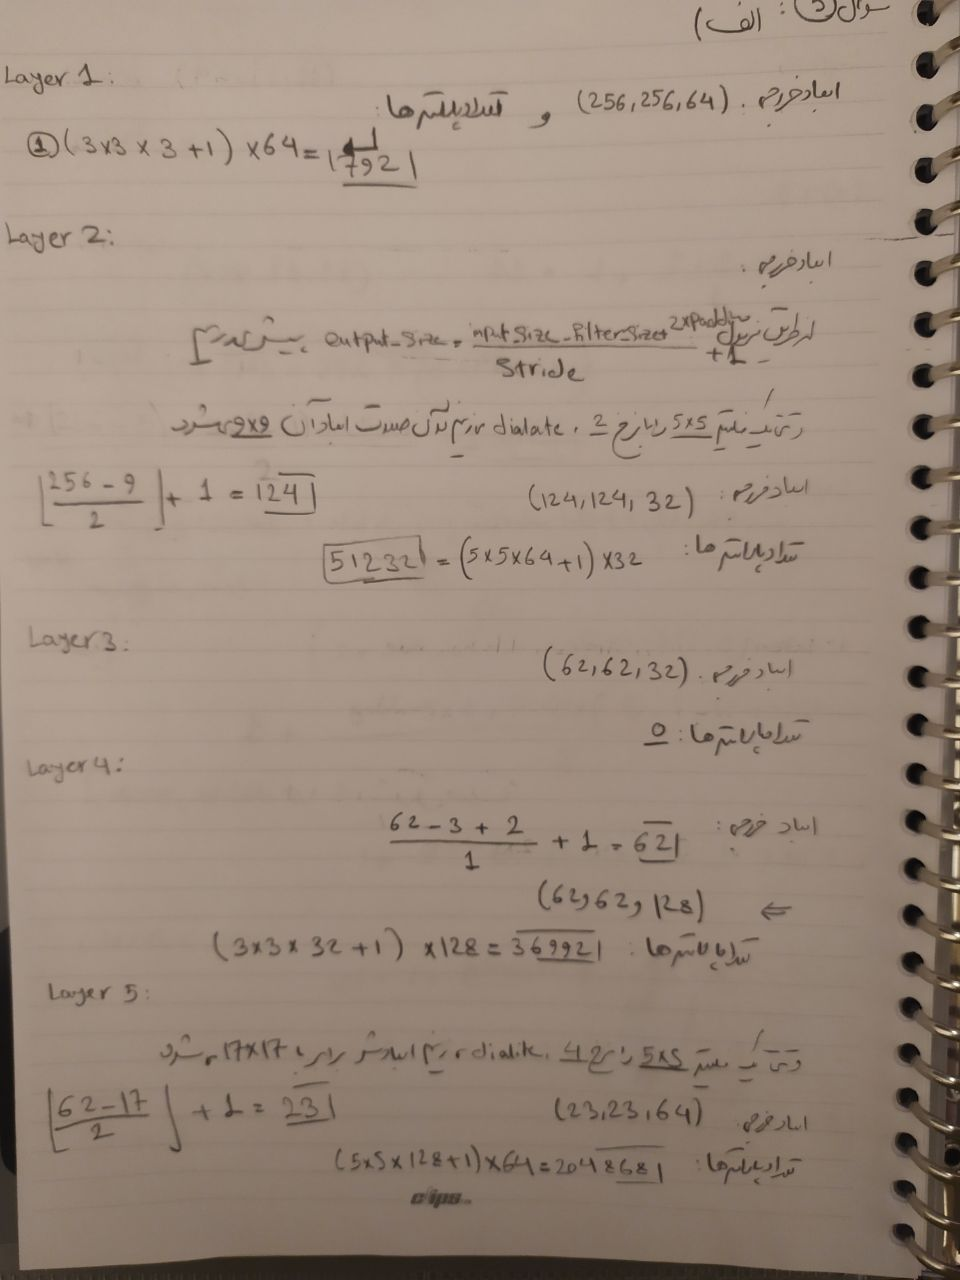 سوال 5: الف)
Layer 1:
ابعاد خروجی: (256,256,64) و تعداد پارامترها:
① (3x3 x 3 +1) x64 = 1792
Layer 2:
ابعاد خروجی:
از طریق فرمول output_size = input_size - filter_size + 2xpadding / stride +1 پیش می‌رویم
وقتی یک فیلتر 5x5 را با نرخ 2، dialate می‌کنیم در آن صورت ابعاد آن 9x9 می‌شود
⌊256 - 9 / 2⌋ + 1 = 124
ابعاد خروجی: (124,124, 32)
تعداد پارامترها: (5x5x64+1) x32 = 51232
Layer 3:
ابعاد خروجی: (62,62,32)
تعداد پارامترها: 0
Layer 4:
ابعاد خروجی: 62 - 3 + 2 / 1 + 1 = 62
⇐ (62,62, 128)
تعداد پارامترها: (3x3x 32 +1) x128 = 36992
Layer 5:
وقتی یک فیلتر 5x5 را با نرخ 4، dialite می‌کنیم ابعادش برابر با 17x17 می‌شود
⌊62-17 / 2⌋ + 1 = 23
ابعاد خروجی: (23,23,64)
تعداد پارامترها: (5x5x128+1)x64=204868
clips